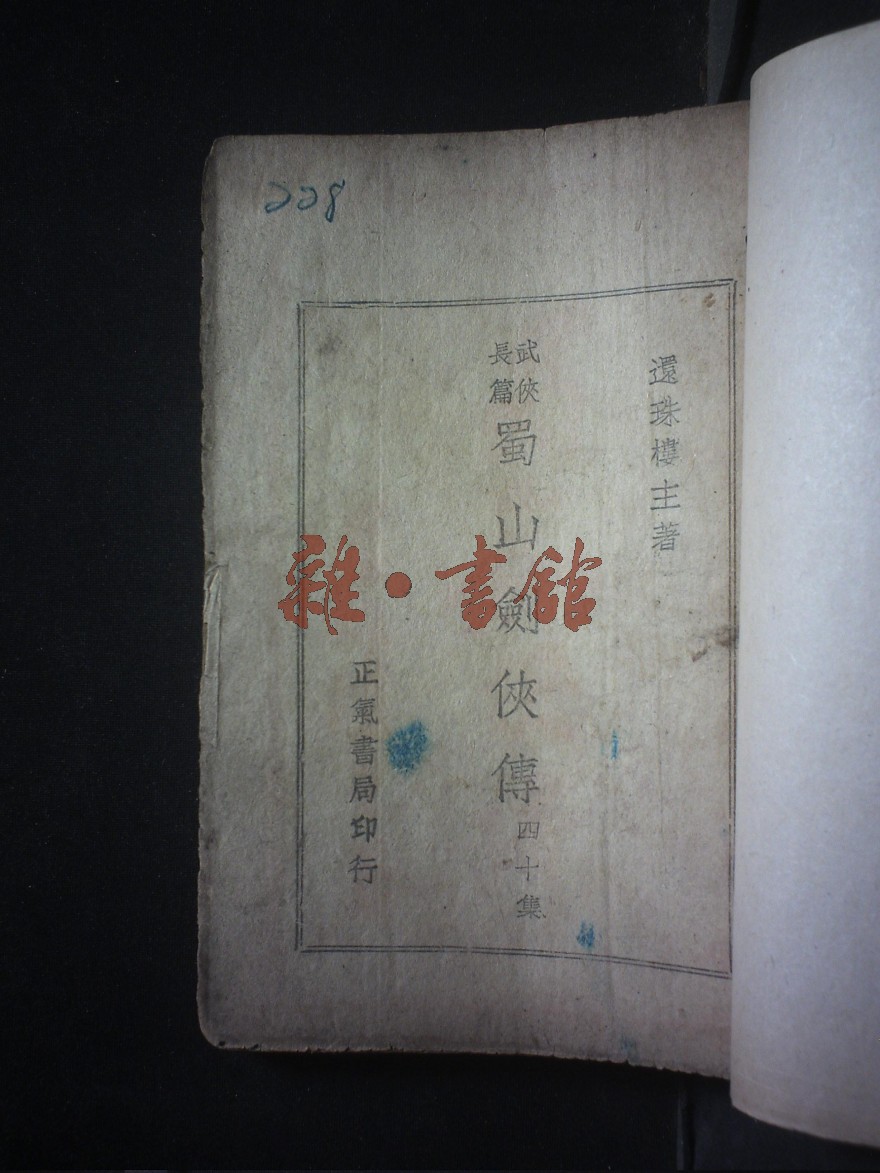 228
還珠樓主著
武俠
長篇
蜀山劍俠傳四十集
正氣書局印行
雜·書館